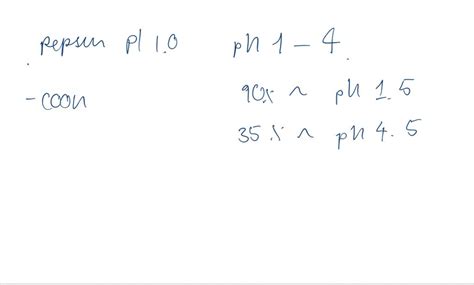 pepsin pI 1.0 pH 1 - 4
-COOH
90% ~ pH 1.5
35% ~ pH 4.5